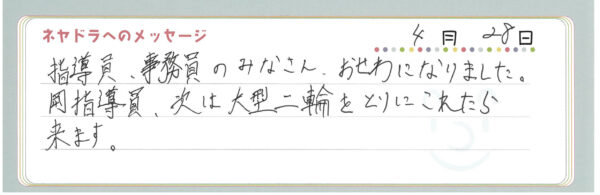 ネヤドラへのメッセージ
4月 28日
指導員、事務員のみなさん、おせわになりました。
岡指導員、次は大型二輪をとりにこれたら
来ます。